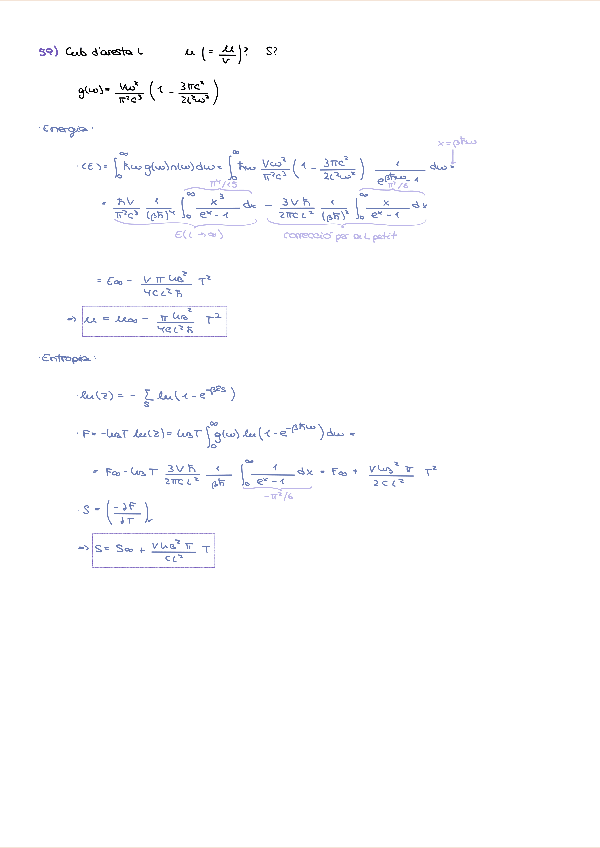 59) Cub d'aresta L u (= U/V)? S?
g(ω) = Vω²/π²c³ (1 - 3πc²/2L²ω²)
· Energia ·
x = βħω
· ⟨E⟩ = ∫₀^∞ ħω g(ω) n(ω) dω = ∫₀^∞ ħω Vω²/π²c³ (1 - 3πc²/2L²ω²) 1/(e^{βħω} - 1) dω =
π⁴/15 π²/6
= ħV/π²c³ 1/(βħ)⁴ ∫₀^∞ x³/(e^x - 1) dx - 3Vħ/2πcL² 1/(βħ)² ∫₀^∞ x/(e^x - 1) dx
E(L→∞) correcció per a L petit
= E∞ - Vπ k_B²/4cL²ħ T²
⇒ u = u∞ - π k_B²/4cL²ħ T²
· Entropia ·
· ln(Z) = - Σ_s ln(1 - e^{-βεs})
· F = -k_BT ln(Z) = k_BT ∫₀^∞ g(ω) ln(1 - e^{-βħω}) dω =
= F∞ - k_BT 3Vħ/2πcL² 1/βħ ∫₀^∞ 1/(e^x - 1) dx = F∞ + Vk_B² π/2cL² T²
-π²/6
· S = (-∂F/∂T)_V
⇒ S = S∞ + Vk_B² π/cL² T